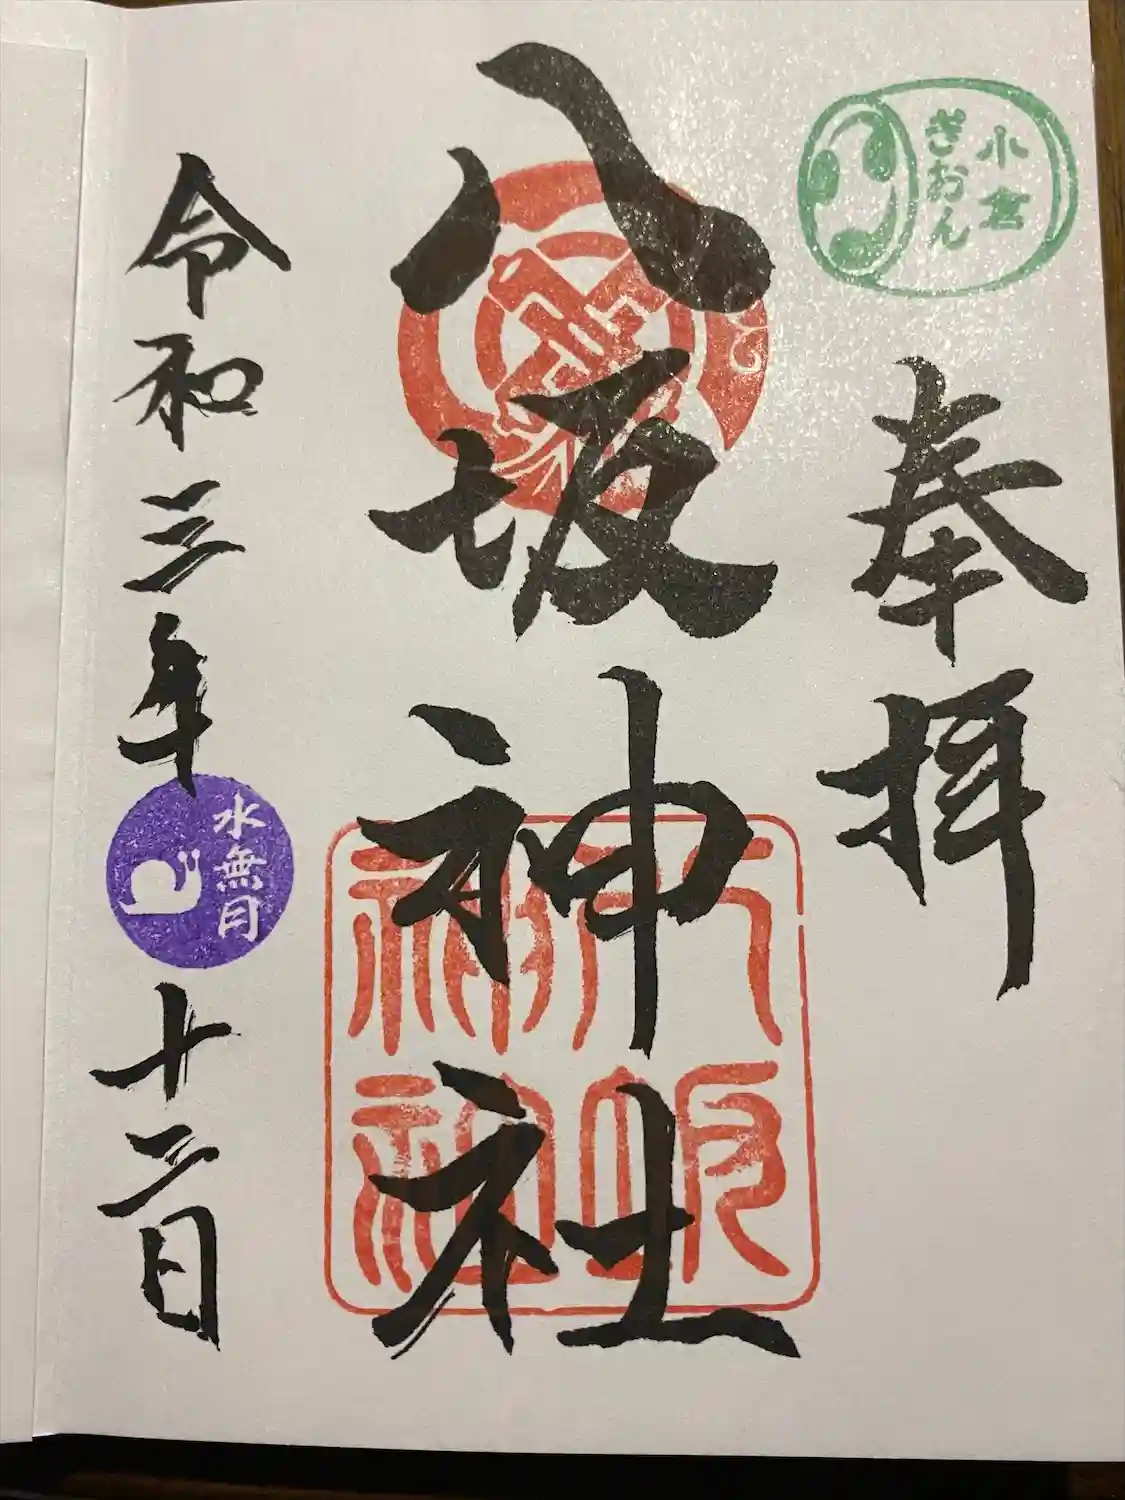 小倉
ぎおん
奉拝
八坂神社
八坂
神社
令和三年
水無月
十二日